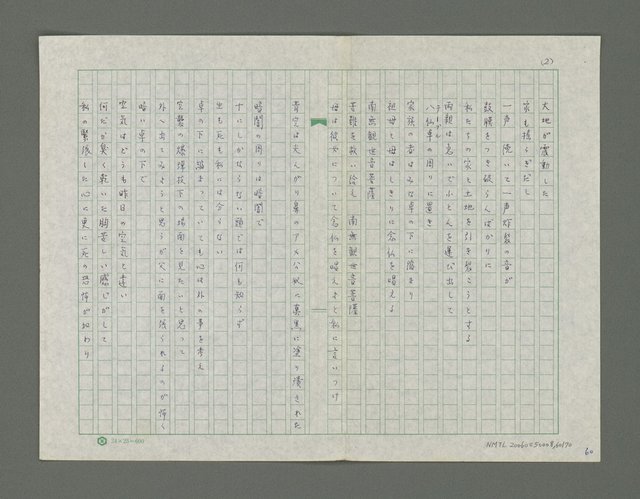 (2)
大地が震動した
家も揺らぎだし
一声 続いて一声炸裂の音が
鼓膜をつき破らんばかりに
私たちの家と土地を引き裂こうとする
両親は急いでふとんを運び出して
八仙卓の周りに置き
家族の者はみな卓の下に隠まり
祖母と母はしきりに念仏を唱える
南無観世音菩薩
苦難を救い給え 南無観世音菩薩
母は彼女について念仏を唱えよと私に言いつけ
青空は天がけり鼻のアメ公奴に真黒に塗り潰された
暗闇の周りは暗闇で
十にしかならない頭では何も知らず
生も死も私には分らない
卓の下に踞まっていても心は外の事を考え
空襲の爆弾投下の場面を見たいと思って
外へ出てみようと思うが父に面を張られるのが怖く
暗い卓の下で
空気はどうも昨日の空気と違い
何だか臭く乾いた胸苦しい感じがして
私の緊張した心に更に死の恐怖が加わり
24×25=600
NMTL 20060050008
60